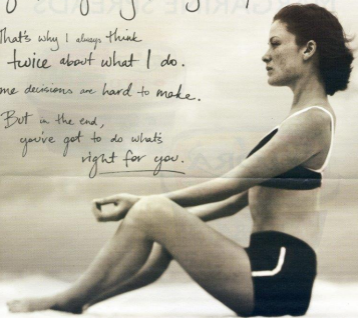 That's why I always think
twice about what I do.
me decisions are hard to make.
But in the end,
you've got to do what's
right for you.